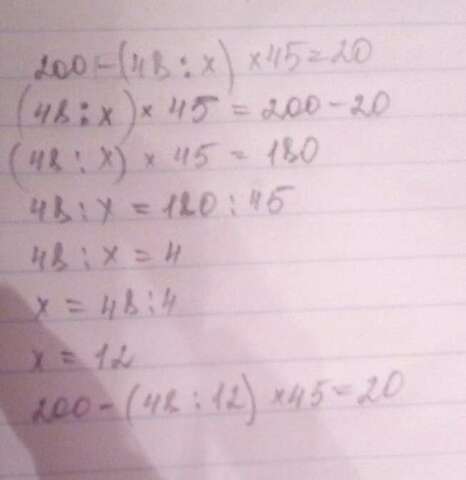 200-(48:x)×45=20
(48:x)×45=200-20
(48:x)×45=180
48:x=180:45
48:x=4
x=48:4
x=12
200-(48:12)×45=20